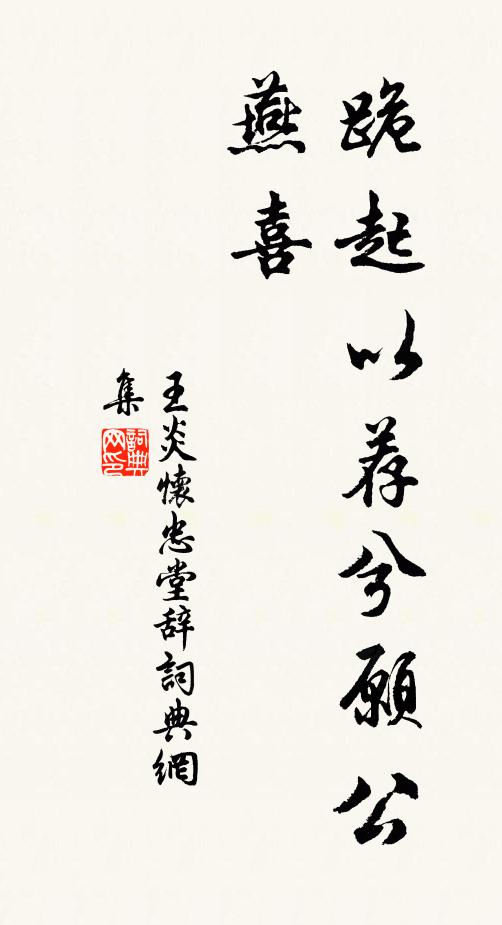 跪起以荐兮願公
燕喜
王炎懷忠堂辞詞典網
集
詞典
网印